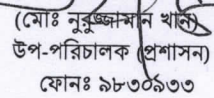 (মোঃ নুরুজ্জামান খান)
উপ-পরিচালক (প্রশাসন)
ফোনঃ ৯৮৩০৯৩৩